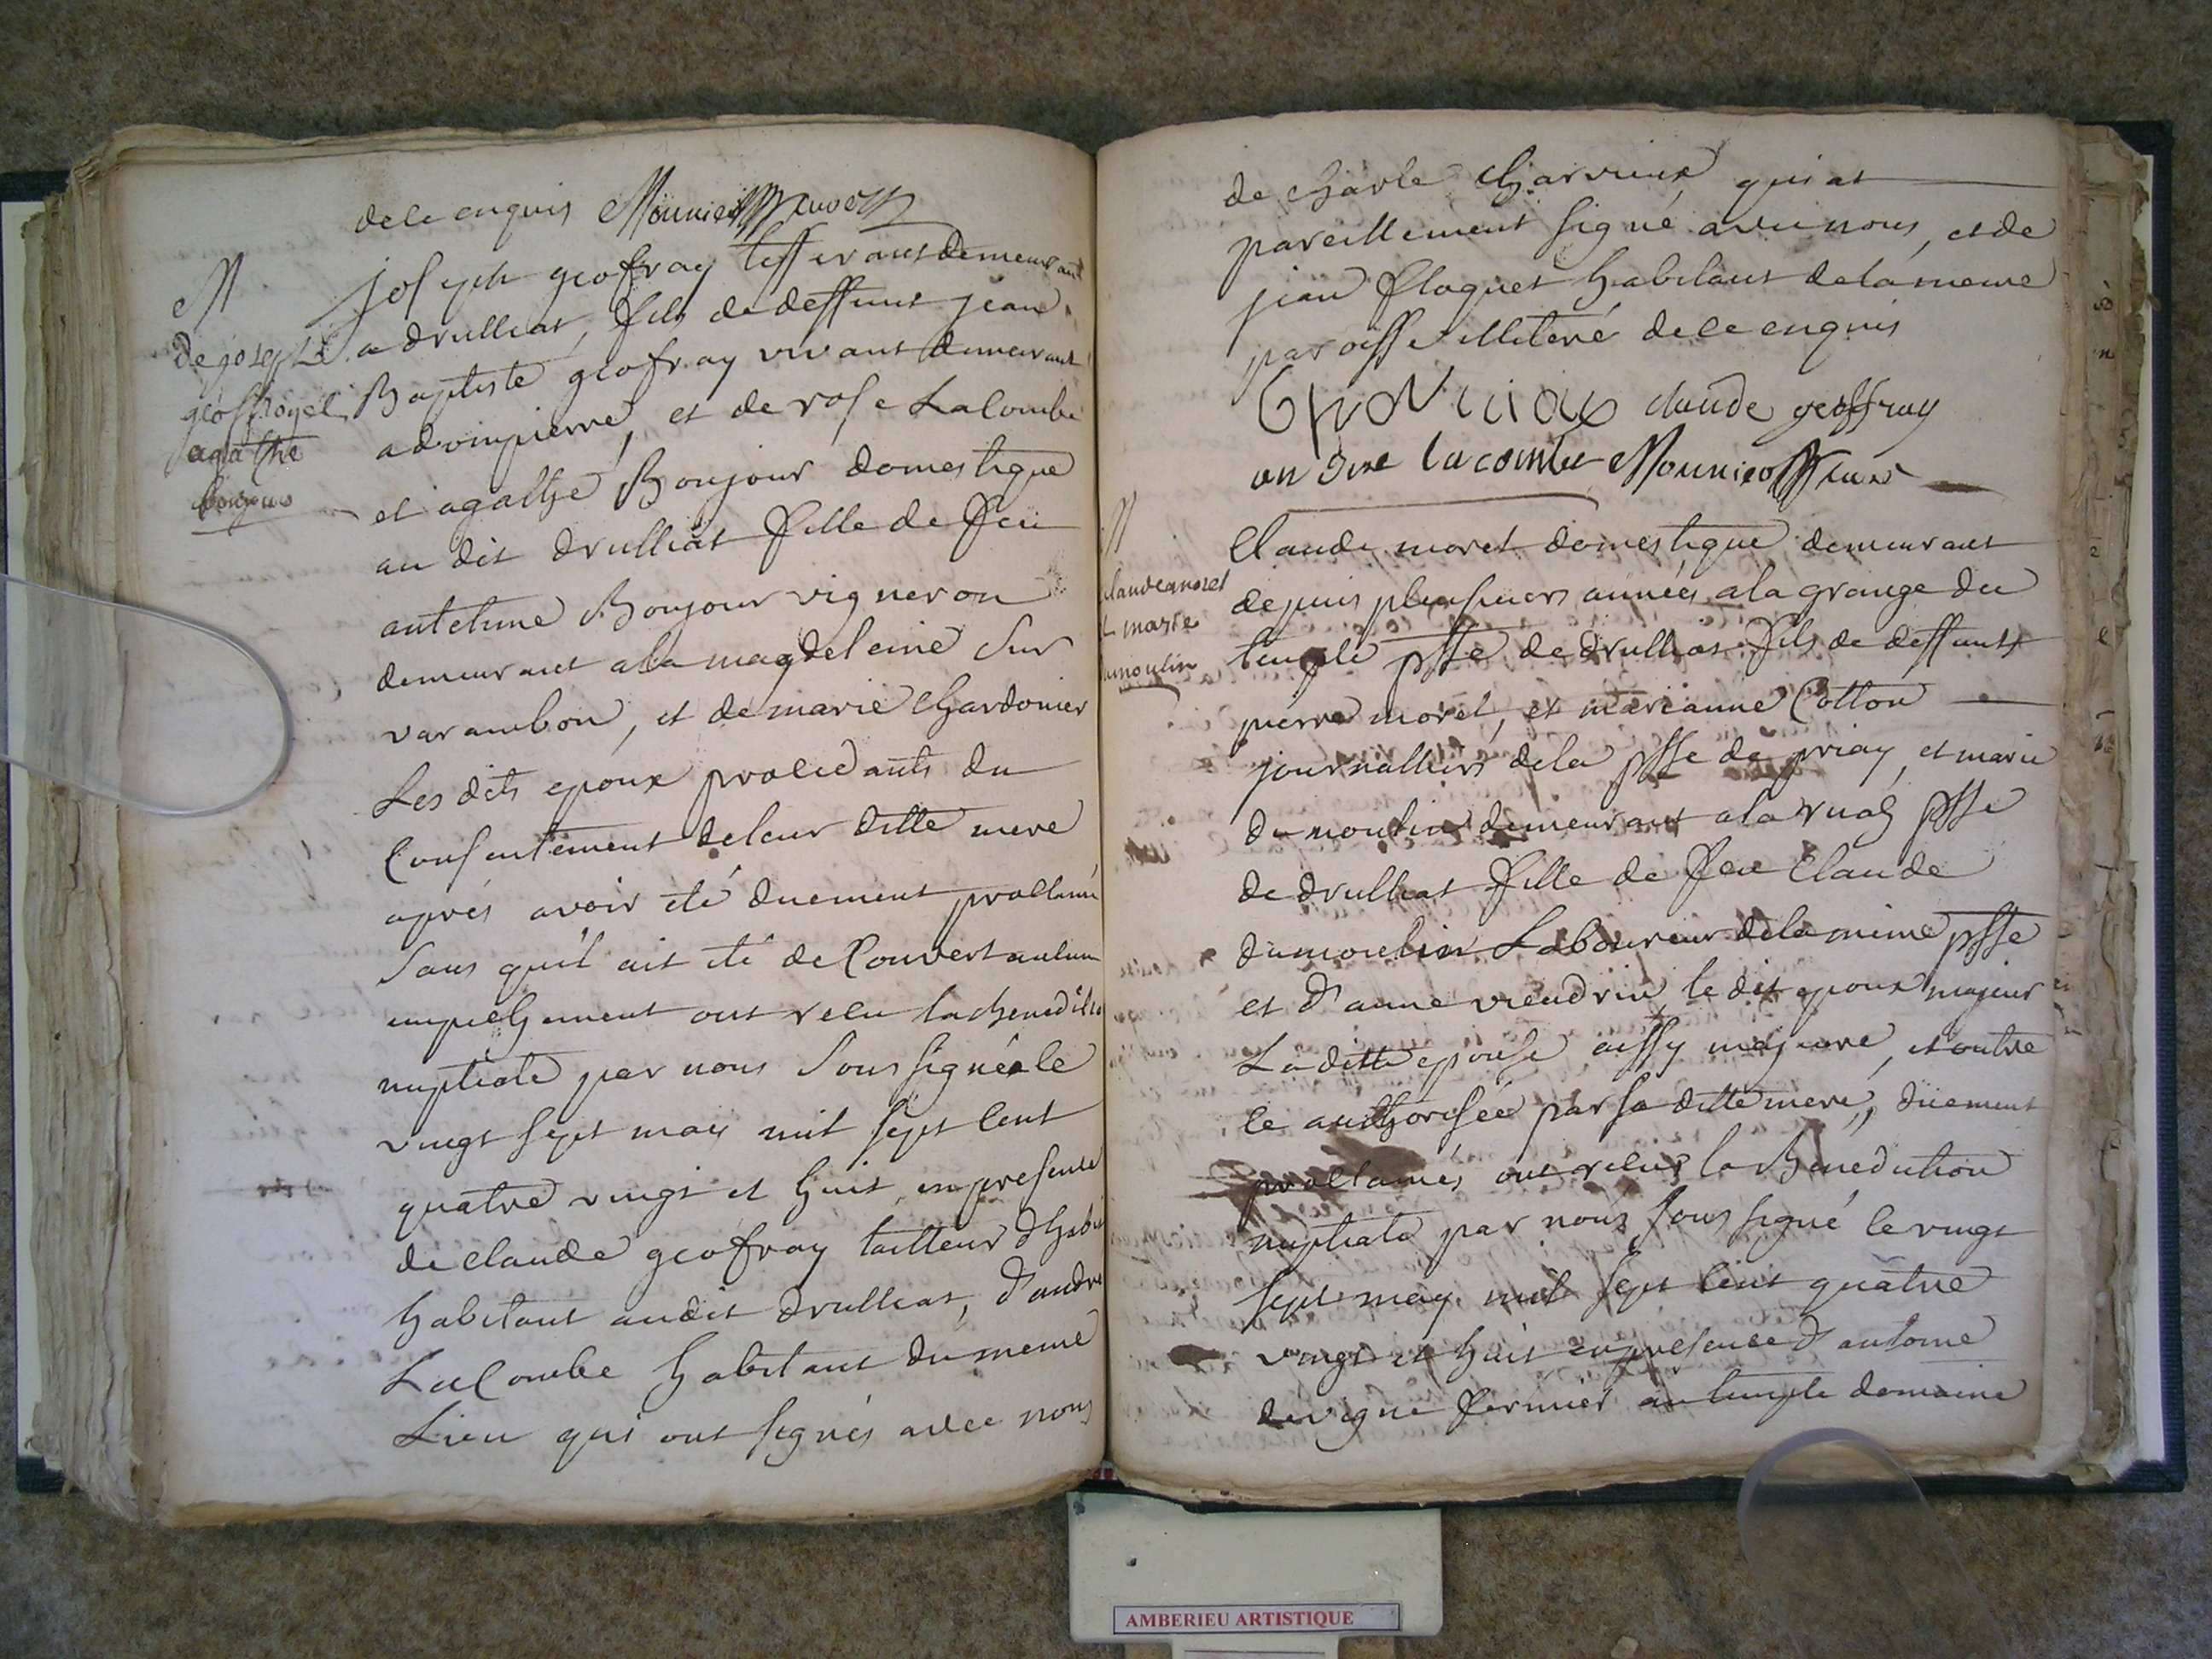 de ce enquis Mounier
M
de joseph
geoffroy et
agathe
bonjour
joseph geofray tisserant demeurant
a drulliat, fils de deffunt jean
Baptiste geofray vivant demeurant
a dompierre, et de rose Lacombe
et agathe Bonjour domestique
au dit drulliat fille de feu
antelme Bonjour vigneron
demeurant a la magdeleine sur
varambon, et de marie Chardonier
Les dits epoux procedants du
Consentement de leur ditte mere
aprés avoir été duement proclamé
sans qu'il ait été decouvert aucun
empechement ont recu la benedictio
nuptiale par nous soussigné le
vingt sept may mil sept cent
quatre vingt et huit en presence
de claude geofray tailleur d'habi
habitant au dit drulliat, d'andre
LaCombe habitant du meme
Lieu qui ont signés avec nous
de charle Charvieux qui at
pareillement signé avec nous, et de
jean floquet habitant de la meme
paroisse illiteré de ce enquis
Charvieux claude geoffray
andre lacombe Mounier
M
claude moret
et marie
dumoulin
Claude moret domestique demeurant
depuis plusieurs années a la grange du
temple psse de drulliat fils de deffunts
pierre moret, et marianne Cotton
journalliers de la psse de priay, et marie
dumoulin demeurant a la ruaz psse
de drulliat fille de feu Claude
dumoulin Laboureur de la meme psse
et d'anne vieudrin, le dit epoux majeur
La ditte epouse aussy majeure, et outre
ce authorisée par sa ditte mere, düement
proclamés ont recus la Benediction
nuptiale par nous soussigné le vingt
sept may mil sept cent quatre
vingt et huit en presence d'antoine
devigne fermier au temple domaine
AMBERIEU ARTISTIQUE